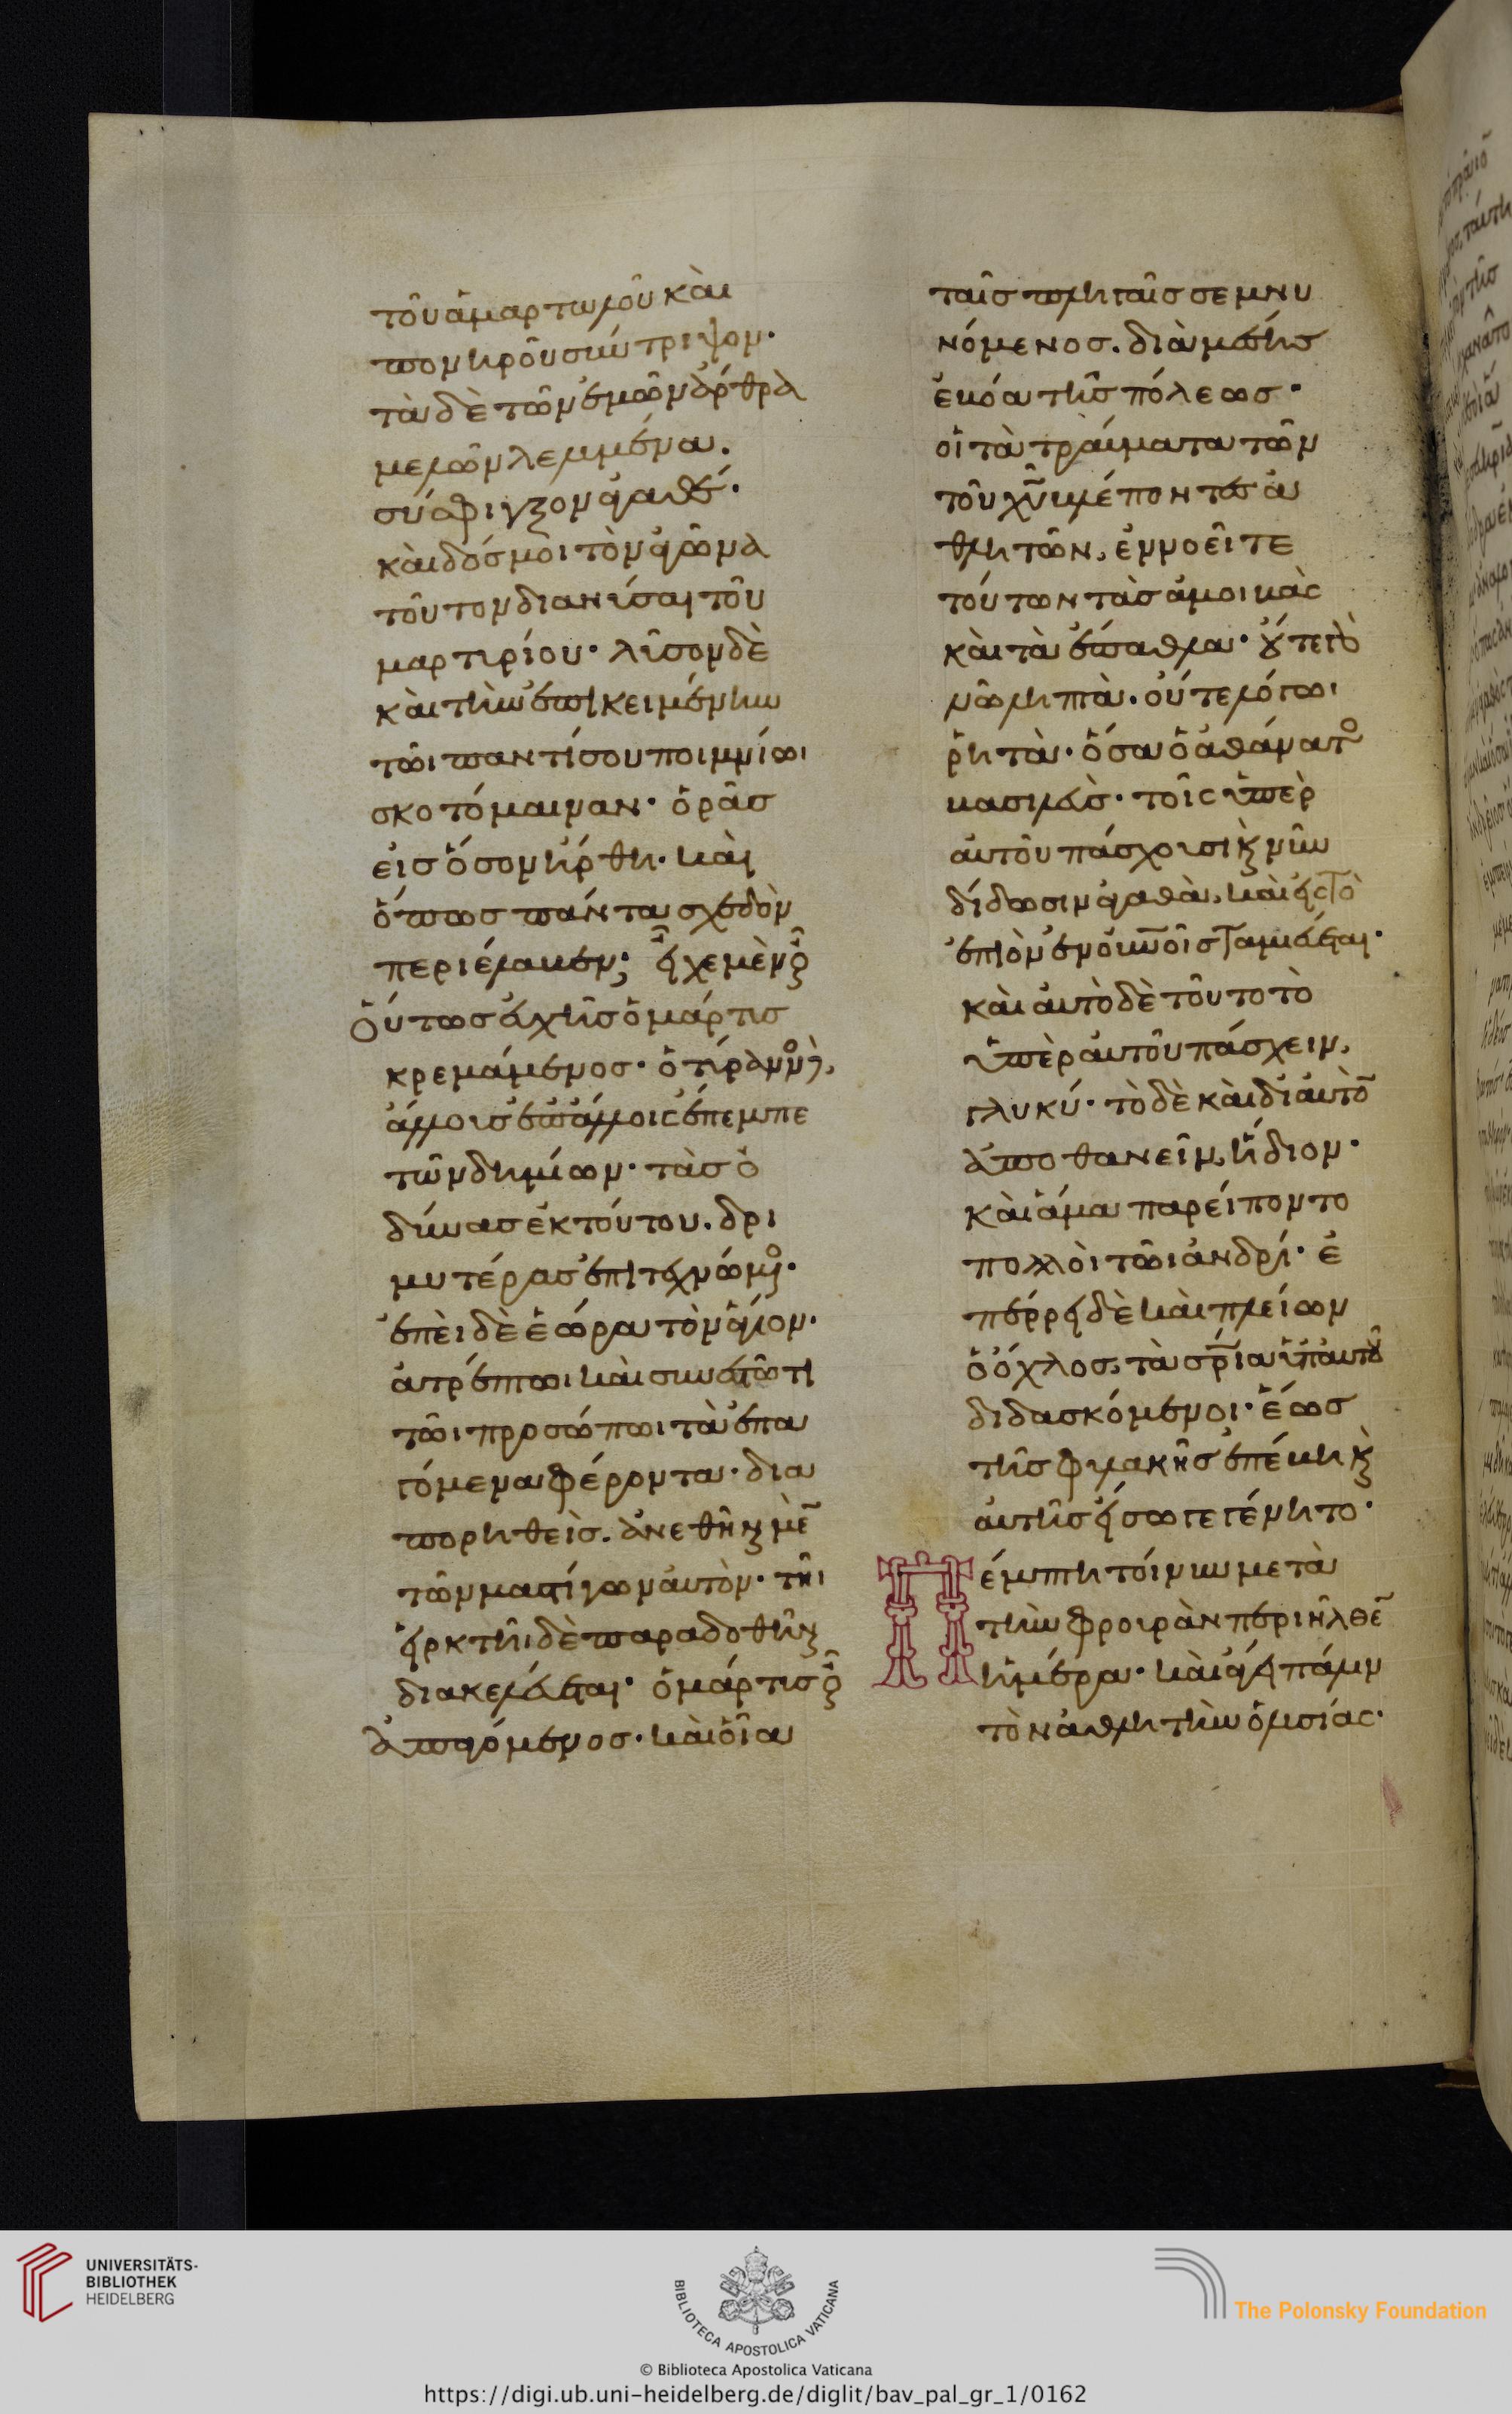 τοῦ ἁμαρτωλοῦ καὶ
πονηροῦ σύντριψον·
τὰ δὲ τῶν ἐμῶν ἄρθρα
μελῶν λελυμένα.
σύσφιγξον ἀγαθέ·
καὶ δός μοι τὸν ἀγῶνα
τοῦτον διανύσαι τοῦ
μαρτυρίου· λῦσον δὲ
καὶ τὴν ἐπικειμένην
τῶι παντί σου ποιμνίωι
σκοτόμαιναν· ὁρᾶς
εἰς ὅσον ἤρθη· καὶ
ὅπως πάντα σχεδὸν
περιέλαβεν; εἶχε μὲν οὖν
Οὕτως εὐχῆς ὁ μάρτυς
κρεμάμενος· ὁ τύραννος δὲ,
ἄλλοις ἐπ' ἄλλοις ἔπεμπε
τῶν δημίων· τὰς ὀ
δύνας ἐκ τούτου. δρι
μυτέρας ἐπιτεχνώμενος·
ἐπεὶ δὲ ἑώρα τὸν ἅγιον·
ἀτρέπτωι καὶ συνεστῶτι
τῶι προσώπωι τὰ ἐπα
γόμενα φέροντα· δια
πορηθεὶς. ἀνεθῆναι μὲν
τῶν μαστίγων αὐτὸν· τῆι
εἱρκτῆι δὲ παραδοθῆναι
διακελεύεται· ὁ μάρτυς οὖν
ἀπαγόμενος· καὶ οἷα
ταῖς πληγαῖς σεμνυ
νόμενος. διὰ μέσης
ἐβόα τῆς πόλεως·
οἱ τὰ τραύματα τῶν
τοῦ χ̅υ̅ βλέποντες ἀ
θλητῶν, ἐννοεῖτε
τούτων τὰς ἀμοιβὰς
καὶ τὰ ἔπαθλα· οὔτε γὰρ
νῶ ληπτὰ· οὔτε λόγωι
ῥητὰ· ὅσα ὁ ἀθάνατος
βασιλεὺς· τοῖς ὑπὲρ
αὐτοῦ πάσχουσι καὶ νῦν
δίδωσιν ἀγαθὰ, καὶ εἰς τὸ
ἐπιὸν ἐν οὐ̅ν̅οῖς ταμιεύεται·
καὶ αὐτὸ δὲ τοῦτο τὸ
ὑπὲρ αὐτοῦ πάσχειν,
γλυκύ· τὸ δὲ καὶ δι' αὐτὸν
ἀποθανεῖν, ἥδιον·
καὶ ἅμα παρείποντο
πολλοὶ τῶι ἀνδρί· ἐ
πέρρει δὲ καὶ πλείων
ὁ ὄχλος, τὰ σ̅ρ̅ια ὑπ' αὐτοῦ
διδασκόμενοι· ἕως
τῆς φυλακῆς ἐπέβη καὶ
αὐτῆς εἴσω γεγένητο·
Πέμπτη τοίνυν μετὰ
τὴν φρουρὰν περιῆλθεν
ἡμέρα· καὶ ἄγει πάλιν
τὸν ἀθλητὴν ὁ λυσίας·
UNIVERSITÄTS-
BIBLIOTHEK
HEIDELBERG
BIBLIOTECA APOSTOLICA VATICANA
© Biblioteca Apostolica Vaticana
The Polonsky Foundation
https://digi.ub.uni-heidelberg.de/diglit/bav_pal_gr_1/0162